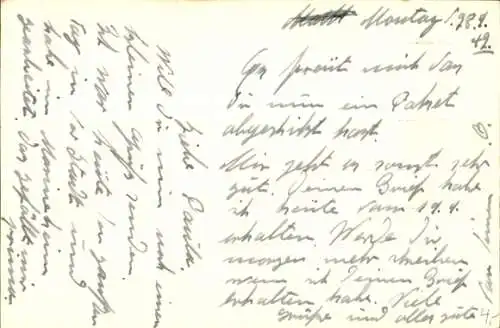 Montag d. 28.9.
42.
Liebe Paula.
Will Dir nun noch einen
kleinen Gruß senden.
Ich war heute den ganzen
Tag in der Stadt und
habe im Mannheim
gearbeitet. Das gefällt mir
prima.
Es freut mich das
Du nun ein Paket
abgeschickt hast.
Mir geht es sonst sehr
gut. Deinen Brief habe
ich heute vom 19.9.
erhalten. Werde Dir
morgen mehr schreiben
wenn ich Deinen Brief
erhalten habe. Viele
Grüße und alles gute